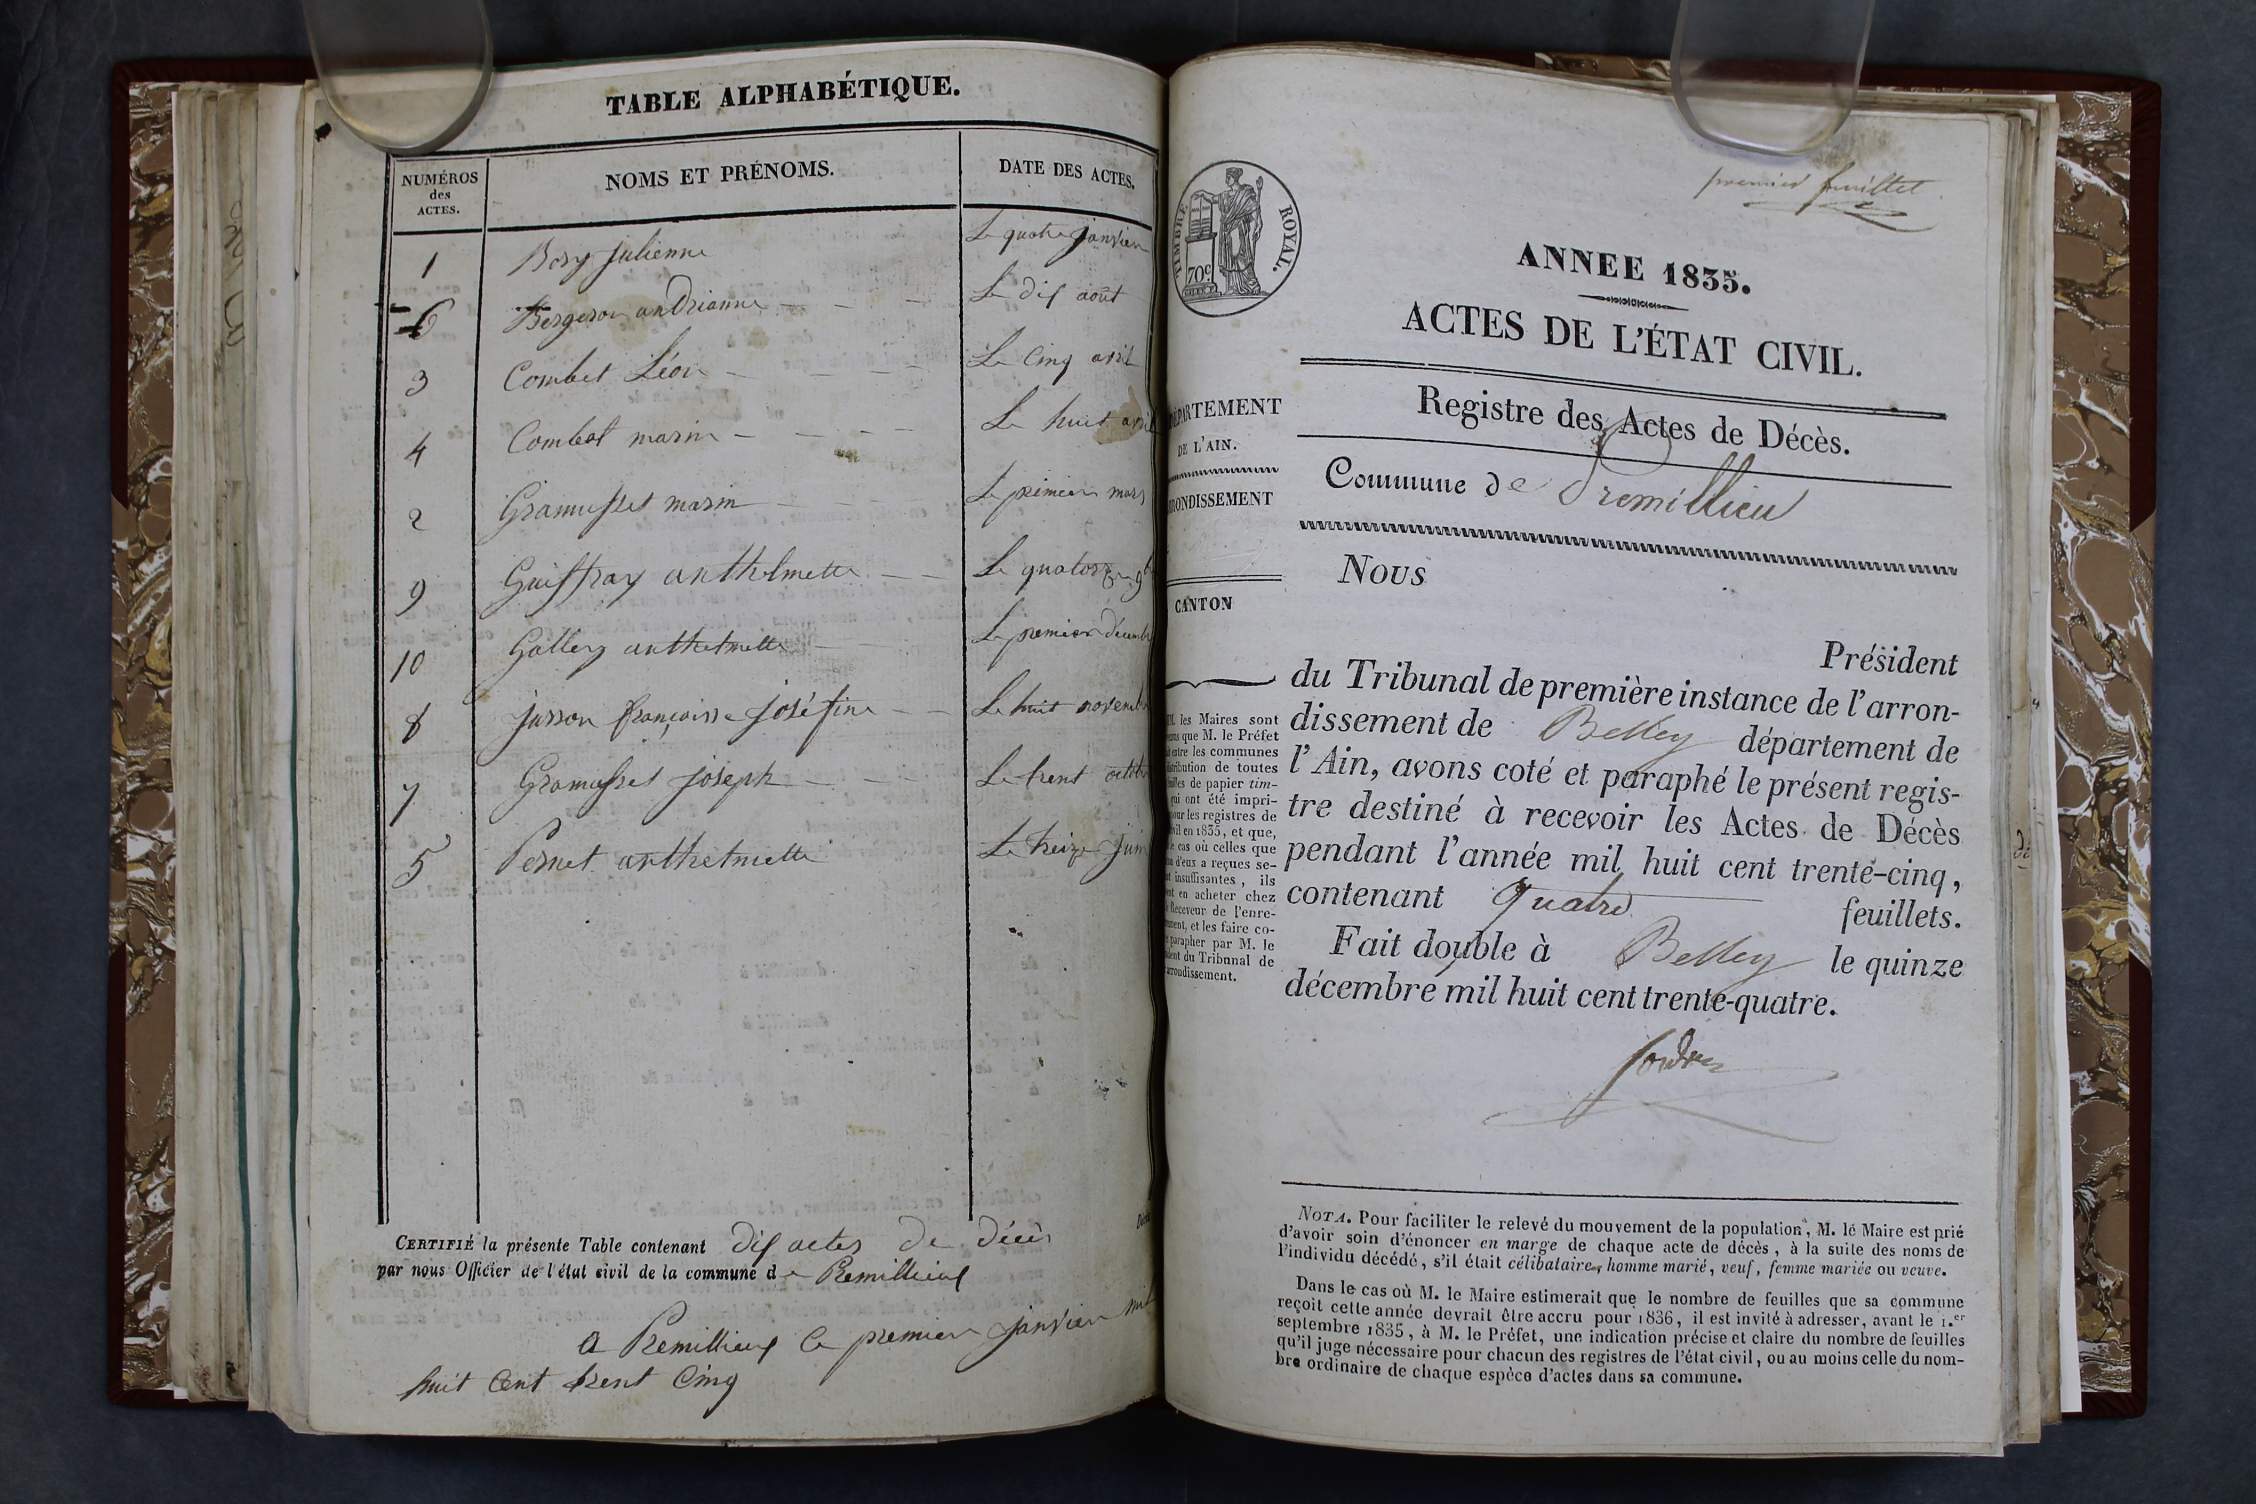 TABLE ALPHABÉTIQUE.
NUMÉROS des ACTES.
NOMS ET PRÉNOMS.
DATE DES ACTES.
1 Bory Julienne Le quatre janvier
6 Bergeron andrianne Le dix août
3 Combet Léon Le cinq avril
4 Combet marin Le huit avril
2 Gramusset marin Le premier mars
9 Guiffray anthelmette Le quatorze 9b
10 Galley anthelmette Le premier décembre
8 Jusson françoise joséfine Le huit novembre
7 Gramusset joseph Le trent octobre
5 Pernet anthelmette Le treize juin
CERTIFIÉ la présente Table contenant dix actes de décès
par nous Officier de l'état civil de la commune de Premillieux
a Premillieux le premier janvier mil
huit cent trent cinq
premier feuillet
TIMBRE ROYAL.
70c
ANNEE 1835.
ACTES DE L'ÉTAT CIVIL.
Registre des Actes de Décès.
Commune de Premillieu
DÉPARTEMENT
DE L'AIN.
ARRONDISSEMENT
CANTON
MM. les Maires sont
que M. le Préfet
entre les communes
distribution de toutes
feuilles de papier tim-
qui ont été impri-
pour les registres de
civil en 1835, et que,
le cas où celles que
d'eux a reçues se-
insuffisantes, ils
en acheter chez
Receveur de l'enre-
et les faire co-
parapher par M. le
Président du Tribunal de
arrondissement.
Nous
Président
du Tribunal de première instance de l'arron-
dissement de Belley département de
l'Ain, avons coté et paraphé le présent regis-
tre destiné à recevoir les Actes de Décès
pendant l'année mil huit cent trente-cinq,
contenant quatre feuillets.
Fait double à Belley le quinze
décembre mil huit cent trente-quatre.
NOTA. Pour faciliter le relevé du mouvement de la population, M. le Maire est prié
d'avoir soin d'énoncer en marge de chaque acte de décès, à la suite des noms de
l'individu décédé, s'il était célibataire, homme marié, veuf, femme mariée ou veuve.
Dans le cas où M. le Maire estimerait que le nombre de feuilles que sa commune
reçoit cette année devrait être accru pour 1836, il est invité à adresser, avant le 1.er
septembre 1835, à M. le Préfet, une indication précise et claire du nombre de feuilles
qu'il juge nécessaire pour chacun des registres de l'état civil, ou au moins celle du nom-
bre ordinaire de chaque espèce d'actes dans sa commune.